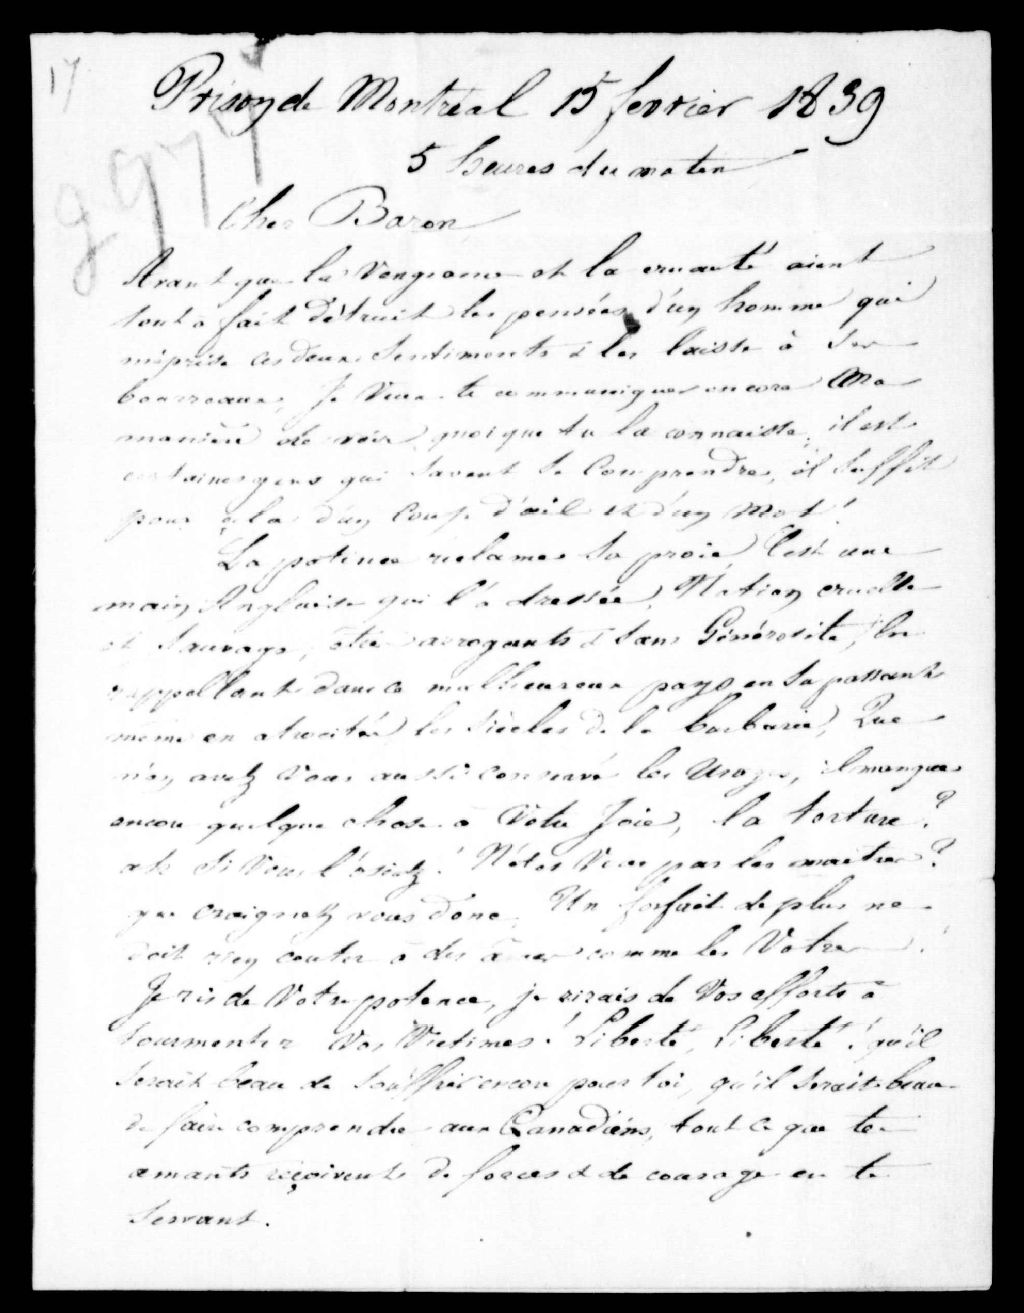 17
2977
Prison de Montréal 15 fevrier 1839
5 heures du matin
Cher Baron
Avant que la Vengeance et la cruauté aient
tout à fait détruit les pensées d'un homme qui
méprise ces deux Sentiments & les laisse à Ses
bourreaux, Je Veux te communiquer encore Ma
manière de voir, quoique tu la connaisse, il est
certaines gens qui Savent Se Comprendre, il Suffit
pour cela d'un Coup d'œil et d'un Mot!
La potence réclame Sa proie, C'est une
main Anglaise qui l'a dressée, Nation cruelle
et Sauvage, arrogante & Sans Générosité, En
rappellant dans ce malheureux pays en Surpassant
même en atrocités les Siècles de la barbarie, Que
n'en avez Vous aussi conservé les Usages, il manque
encore quelque chose à Votre Joie, la torture?
ah Si Vous l'osiez! N'êtes Vous pas les maitres?
que craignez vous donc, Un forfait de plus ne
doit rien couter à des âmes comme les Votres!
Je ris de Votre potence, je rirais de Vos efforts à
tourmenter Vos Victimes! Liberté, Liberté! qu'il
Serait beau de Souffrir encore pour toi, qu'il Serait beau
de faire comprendre aux Canadiens, tout ce que tes
amants reçoivent de forces & de courage en te
Servant.